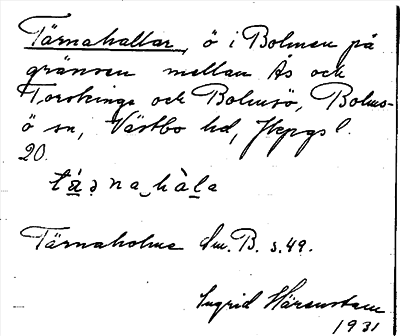 Tärnahallar, ö i Bolmen på
gränsen mellan Ås och
Torskinge och Bolmsö, Bolms-
ö sn, Västbo hd, Jkpgs l.
20.
Tärnaholme Gm. B. s. 49.
Ingrid Härenstam
1931